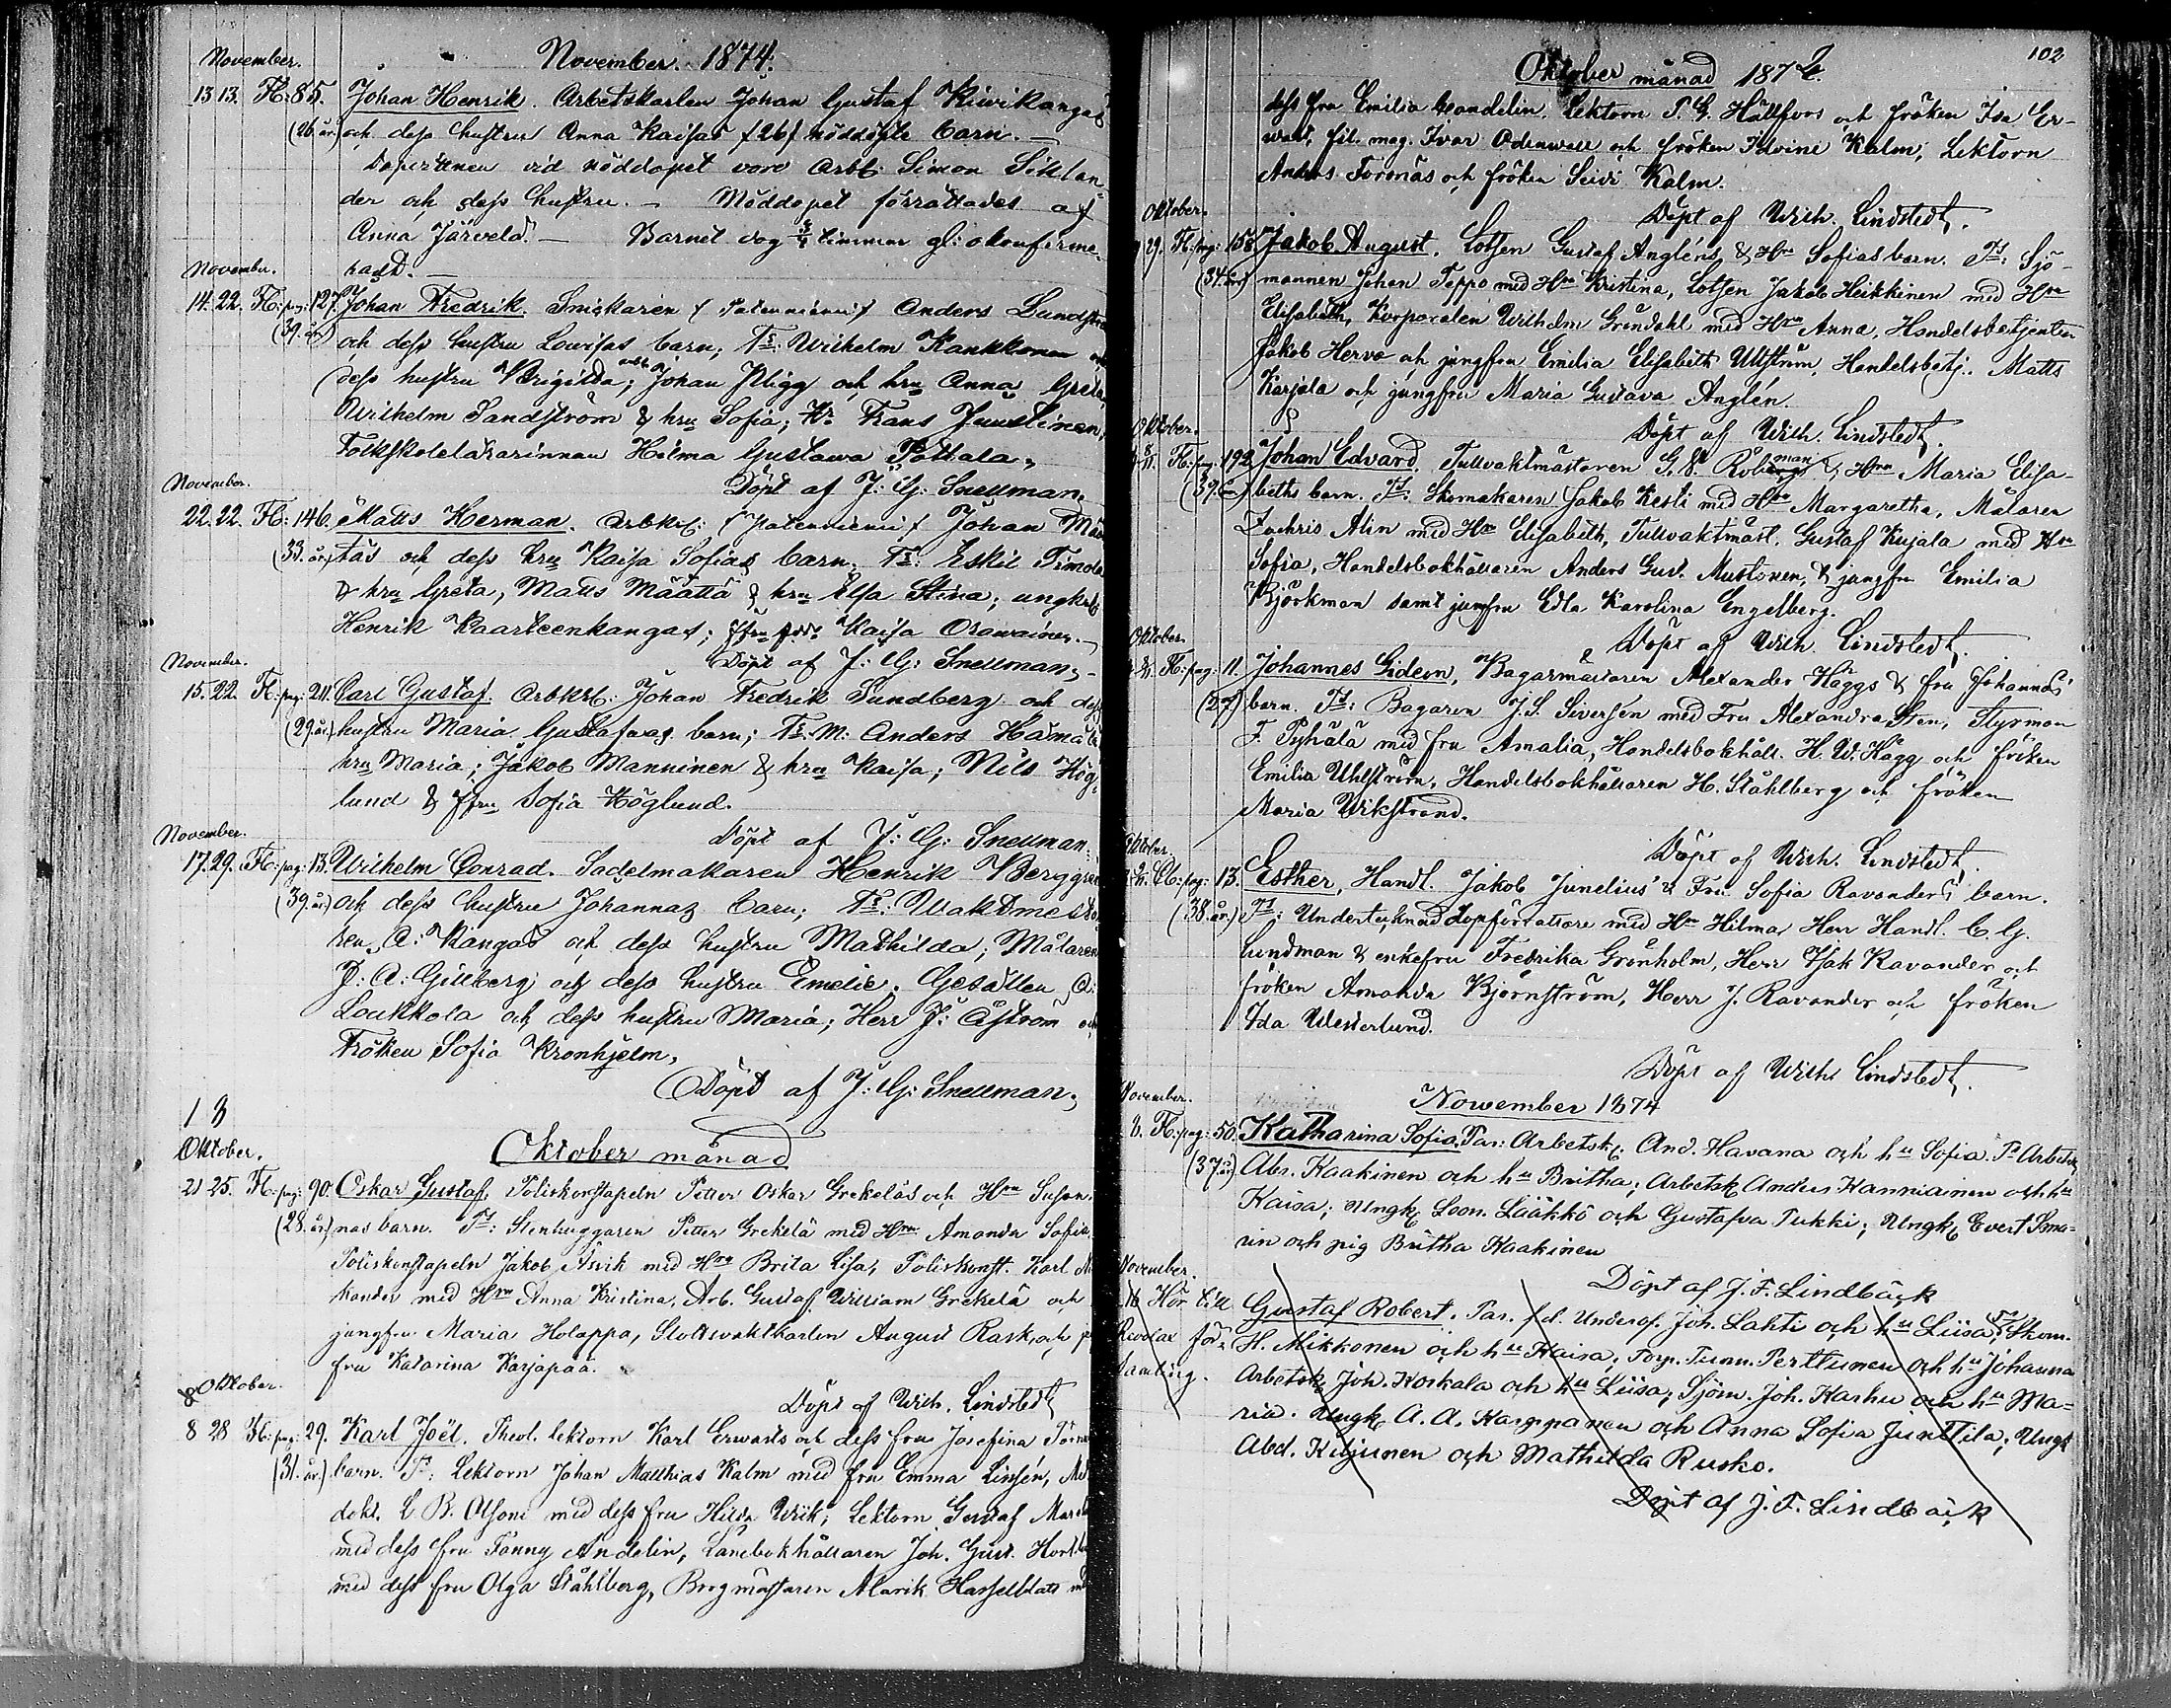 November.
November. 1874.
13 13. Fl: 85. Johan Henrik. Arbetskarlen Johan Gustaf Kiwikangas
(26 år) och dess hustru Anna Kaisas (26) nöddöpte barn. —
vid nöddopet voro Arbk: Simon
der och dess hustru. — Nöddopet förrättades af
Anna Järvelä. — Barnet dog 3/4 timmar gl: okonfirme-
radt. —
November.
14. 22. Fl: pag: 127. Johan Fredrik. Snickaren Anders
(39. år) och dess hustru Lovisas barn; Ts: Wilhelm Kankkonen och
dess hustru Brigitta; Johan och hru Anna Greta,
Wilhelm Sandström & hru Sofia; Hr Frans Juustinen,
Folkskolelärarinnan Hilma Gustawa Pottala,
Döpt af J: G: Snellman.
November.
22. 22. Fl: 146. Matts Herman. Arbkrl: Johan
(33. år) och dess hru Kaisa Sofias barn, Ts: Eskil
& hru Greta, Matts Määttä & hru Elsa Stina; ungkrl
Henrik Kaarteenkangas; Kaisa Orawainen. —
Döpt af J: G: Snellman. —
November.
15. 22. Fl: pag: 211. Carl Gustaf. Arbkrl: Johan Fredrik Sundberg och dess
(29. år) hustru Maria Gustafvas barn; Ts: M: Anders
hru Maria; Jakob Manninen & hru Kaisa; Nils Hög-
lund & Sofia Höglund.
Döpt af J: G: Snellman.
November.
17. 29. Fl: pag: 13. Wilhelm Conrad. Sadelmakaren Henrik
(39. år) och dess hustru Johannas barn; Ts:
A: Kangas och dess hustru Mathilda; Målaren
J: A: Gillberg och dess hustru Emelie. Gesällen A:
Loukkola och dess hustru Maria; Herr J: Åström och
Fröken Sofia Kronhjelm,
Döpt af J: G: Snellman.
1 8
Oktober.
Oktober månad
21 25. Fl: pag: 90. Oskar Gustaf, Poliskonstapeln Petter Oskar Grekeläs och Hru Susan-
(28. år) nas barn. Ts: Stenhuggaren Petter Grekelä med Hru Amanda Sofia,
Poliskonstapeln Jakob med Hru Brita Lisa, Poliskonst. Karl
med Hru Anna Kristina, Arb. Gustaf William Grekelä och
jungfru Maria Holappa, Slottsvaktkarlen August Rask, och
fru Katarina Karjapää.
Döpt af Wilh. Lindstedt
Oktober.
8 28 Fl: pag: 29. Karl Joël. Theol. lektorn Karl Erwasts och dess fru Josefina
(31. år) barn. Ts: Lektorn Johan Matthias Kalm med fru Emma Linsén,
med dess fru Hilda Wiik, Lektorn Gustaf
med dess fru Fanny Andelin, Länebokhållaren Joh. Gust.
med dess fru Olga Ståhlberg, Borgmästaren Alarik Hasselblatt
102
Oktober månad 1874.
dess fru Emilia Candelin. Lektorn P. G. Hällfors och fröken Ida Er-
wast, fil. mag. Ivar Odenwall och fröken Idvine Kalm, Lektorn
Anders Torenäs och fröken Seivi Kalm.
Döpt af Wilh. Lindstedt.
Oktober.
29. Fl: pag: 158 Jakob August. Lotsen Gustaf Angléns & Hru Sofias barn. Ts: Sjö-
(34. år) mannen Johan Teppo med Hru Kristina, Lotsen Jakob Heikkinen med Hru
Elisabeth, Korporalen Wilhelm Gröndahl med Hru Anna, Handelsbetjenten
Jakob Herva och jungfru Emilia Elisabeth Uhlström, Handelsbetj. Matts
Karjala och jungfru Maria Gustava Anglén.
Oktober.
Döpt af Wilh. Lindstedt.
Fl: pag: 192 Johan Edvard. Tullvaktmästaren G. E. Robergs man & Hru Maria Elisa-
(39. år) beths barn. Ts: Skomakaren Jakob Kesti med Hru Margaretha, Målaren
Zachris Alin med Hru Elisabeth, Tullvaktmäst. Gustaf Kujala med Hru
Sofia, Handelsbokhållaren Anders Gust. Mustonen, & jungfru Emilia
Björkman samt jumfru Edla Karolina Engelberg.
Oktober.
Döpt af Wilh. Lindstedt.
Fl: pag: 11. Johannes Gideon, Bagarmästaren Alexander Häggs & fru Johannas
(27) barn. Ts: Bagaren J. S. Siversén med Fru Alexandra Sten, Styrman
F. Pyhälä med fru Amalia, Handelsbokhåll. H. W. Hägg och fröken
Emilia Uhlström, Handelsbokhållaren H. Ståhlberg och fröken
Maria Wikstrand.
Oktober.
Döpt af Wilh. Lindstedt.
pag: 13. Esther, Handl. Jakob Junelius' & Fru Sofia Ravanders barn.
(38. år) Ts: Undertecknad dopförrättare med Hru Hilma, Herr Handl. C. G.
Sundman & enkefru Fredrika Grönholm, Herr Isak Ravander och
fröken Amanda Björnström, Herr J. Ravander och fröken
Ida Westerlund.
Döpt af Wilh. Lindstedt.
November.
November 1874
8. Fl: pag: 50. Katharina Sofia, Par: Arbetsk. And. Havana och hu Sofia. Ts Arbetsk
(37 år) Abr. Kaakinen och hu Britha; Arbetsk Anders Hanniainen och hu
Kaisa; Ungk Leon. Lääkkö och Gustafva Tukki; Ungk Evert Sma-
rin och pig Britha Kaakinen
Döpt af J. F. Lindbäck
November.
Hör till Gustaf Robert. Par. f.d. Underof. Joh. Lahti och hu Liisa. Ts: Skom.
Revolax för- H. Mikkonen och hu Kaisa; Torp. Tunn. Perttunen och hu Johanna
samling. Arbetsk. Joh. Koskala och hu Liisa; Sjöm. Joh. Karhu och hu Ma-
ria. Ungk A. A. Karppanen och Anna Sofia Junttila; Ungk
Abd. Kiljunen och Mathilda Rusko.
Döpt af J. F. Lindbäck